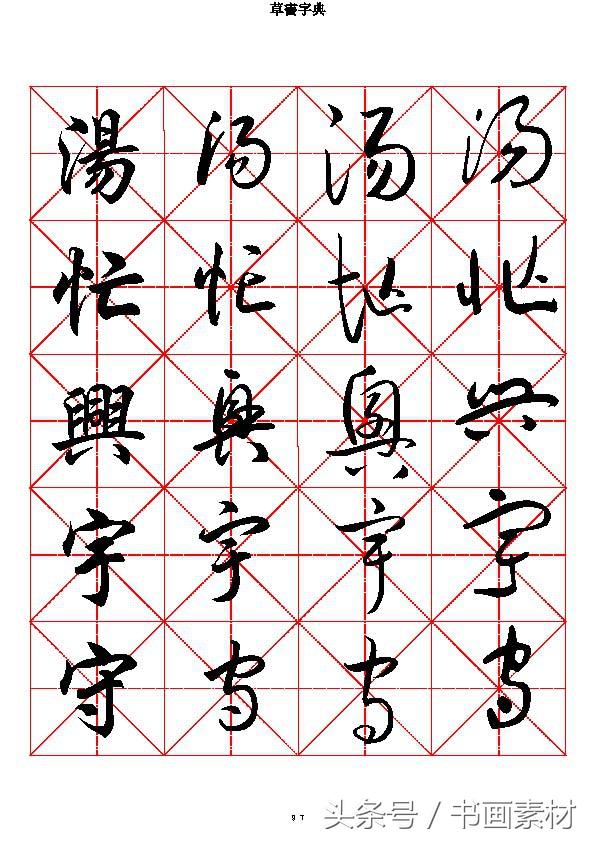 草書字典
湯 湯 湯 湯
忙 忙 忙 忙
興 興 興 興
宇 宇 宇 宇
守 守 守 守
97
头条号 / 书画素材